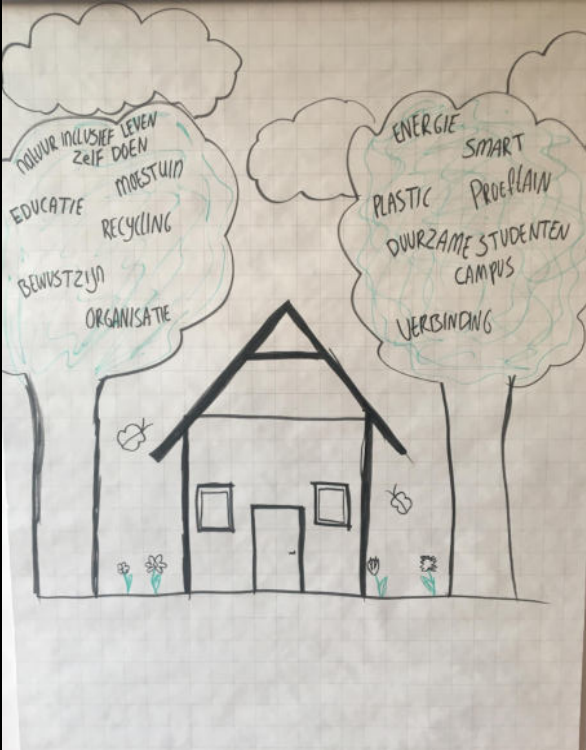 NATUUR INCLUSIEF LEVEN
ZELF DOEN
MOESTUIN
EDUCATIE
RECYCLING
BEWUSTZIJN
ORGANISATIE
ENERGIE
SMART
PLASTIC
PROEFLAIN
DUURZAME STUDENTEN
CAMPUS
VERBINDING